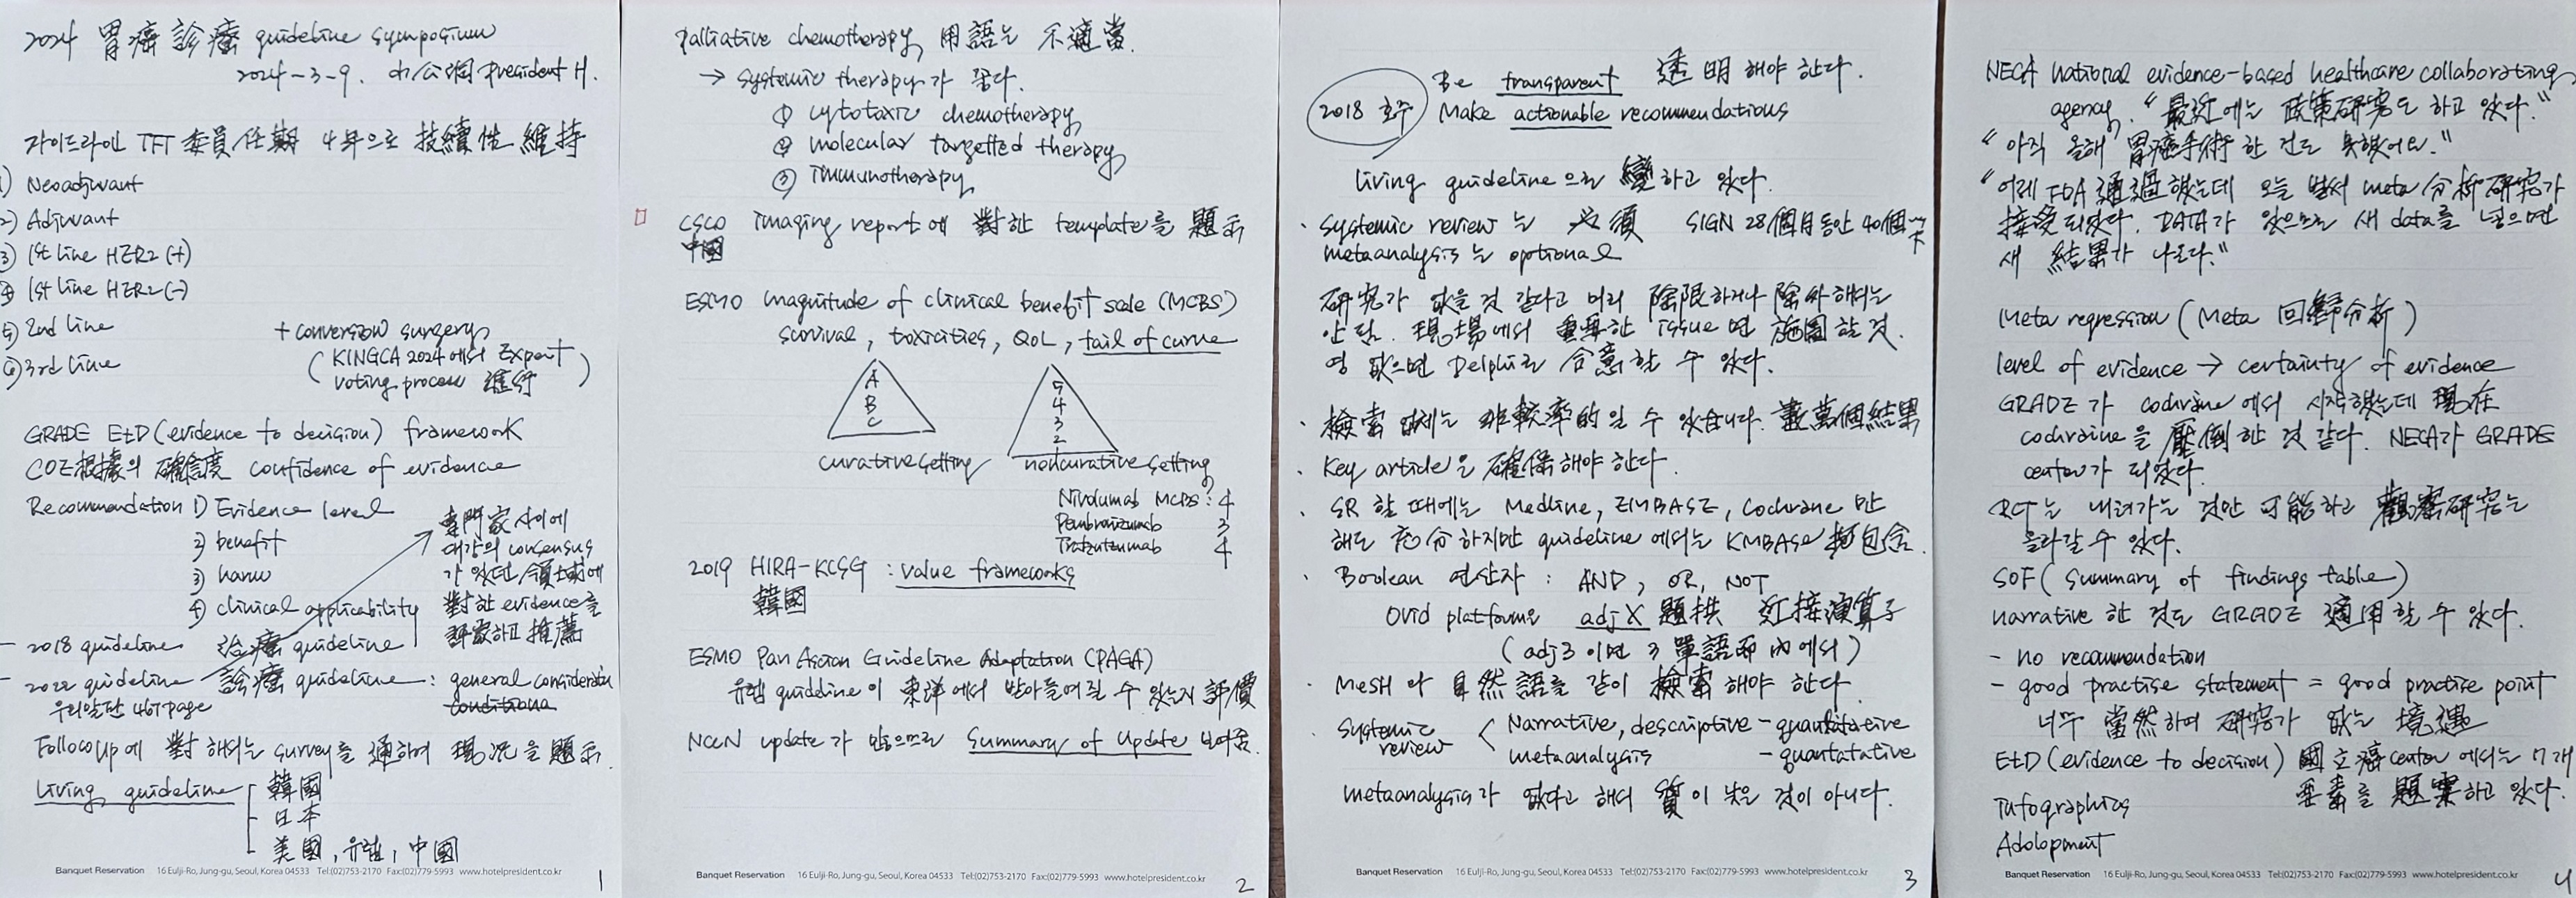 2024 胃癌 診療 guideline symposium
2024-3-9. president H.
가이드라인 TFT 委員任期 4年으로 技續性 維持
1) Neoadjuvant
2) Adjuvant
③ 1st line HER2 (+)
④ 1st line HER2 (-)
⑤ 2nd line
⑥ 3rd line
+ conversion surgery
( KINGCA 2024 에서 Expert
voting process 進行 )
GRADE EtD (evidence to decision) framework
COE 根據의 確信度 confidence of evidence
Recommendation 1) Evidence level
2) benefit
3) harm
4) clinical applicability
専門家 사이에
대강의 consensus
가 있던 領域에
對한 evidence를
評家하고 推薦
- 2018 guideline 治療 guideline
- 2022 guideline 診療 guideline : general consideration
우리말판 467 page
Follow up에 對해서는 survey를 通하여 現況을 題示.
living guideline
韓國
日本
美國, 유럽, 中國
Banquet Reservation 16 Eulji-Ro, Jung-gu, Seoul, Korea 04533 Tel:(02)753-2170 Fax:(02)779-5993 www.hotelpresident.co.kr
1
palliative chemotherapy 用語는 不適當.
→ systemic therapy가 좋다.
① cytotoxic chemotherapy
② molecular targetted therapy
③ immunotherapy
CSCO imaging report에 對한 template를 題示
中國
ESMO magnitude of clinical benefit scale (MCBS)
survival, toxicities, QoL, tail of curve
A
B
C
curative setting
5
4
3
2
noncurative setting
Nivolumab MCBS : 4
Pembrolizumab 3
Trastuzumab 4
2019 HIRA-KCSG : value frameworks
韓國
ESMO Pan Asian Guideline Adaptation (PAGA)
유럽 guideline이 東洋에서 받아들여질 수 있는지 評價
NCCN update가 많으므로 Summary of Update 보여줌.
Banquet Reservation 16 Eulji-Ro, Jung-gu, Seoul, Korea 04533 Tel:(02)753-2170 Fax:(02)779-5993 www.hotelpresident.co.kr
2
2018 호주
Be transparent 透明해야 한다.
Make actionable recommendations
living guideline으로 變하고 있다.
· systemic review는 必須 SIGN 28個月동안 40個
metaanalysis는 optional
研究가 없을 것 같다고 미리 除限하거나 除外해서는
안 됨. 現場에서 重要한 issue면 施圖할 것.
영 없으면 Delphi로 合意할 수 있다.
· 檢索 업체는 非較率的일 수 있습니다. 數萬個結果
· Key article을 確保해야 한다.
· SR 할 때에는 Medline, EMBASE, Cochrane 만
해도 充分하지만 guideline에서는 KMBASE 包含.
· Boolean 연산자 : AND, OR, NOT
Ovid platform은 adj X 題拱 近接演算子
( adj3 이면 3 單語 內에서 )
· MeSH 와 自然語를 같이 檢索해야 한다.
· Systemic review < Narrative, descriptive - qualitative
metaanalysis - quantatative
metaanalysis가 없다고 해서 質이 낮은 것이 아니다.
Banquet Reservation 16 Eulji-Ro, Jung-gu, Seoul, Korea 04533 Tel:(02)753-2170 Fax:(02)779-5993 www.hotelpresident.co.kr
3
NECA national evidence-based healthcare collaborating
agency. "最近에는 政策研究도 하고 있다."
"아직 올해 胃癌手術 한 건도 못했어요."
"어제 FDA 通過했는데 오늘 벌써 meta分析研究가
接受되었다. DATA가 있으므로 새 data를 넣으면
새 結果가 나온다."
Meta regression (Meta 回歸分析)
level of evidence → certainty of evidence
GRADE가 cochrane에서 시작했는데 現在
cochraine을 壓倒한 것 같다. NECA가 GRADE
center가 되었다.
RCT는 내려가는 것만 可能하고 觀察研究는
올라갈 수 있다.
SOF (summary of findings table)
narrative 한 것도 GRADE 適用할 수 있다.
- no recommendation
- good practise statement = good practise point
너무 當然하여 研究가 없는 境遇
EtD (evidence to decision) 國立癌center에서는 7개
要素를 題案하고 있다.
Infographics
Adolopment
Banquet Reservation 16 Eulji-Ro, Jung-gu, Seoul, Korea 04533 Tel:(02)753-2170 Fax:(02)779-5993 www.hotelpresident.co.kr
4